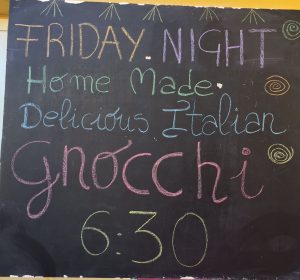 FRIDAY NIGHT
Home Made
Delicious Italian
Gnocchi
6:30